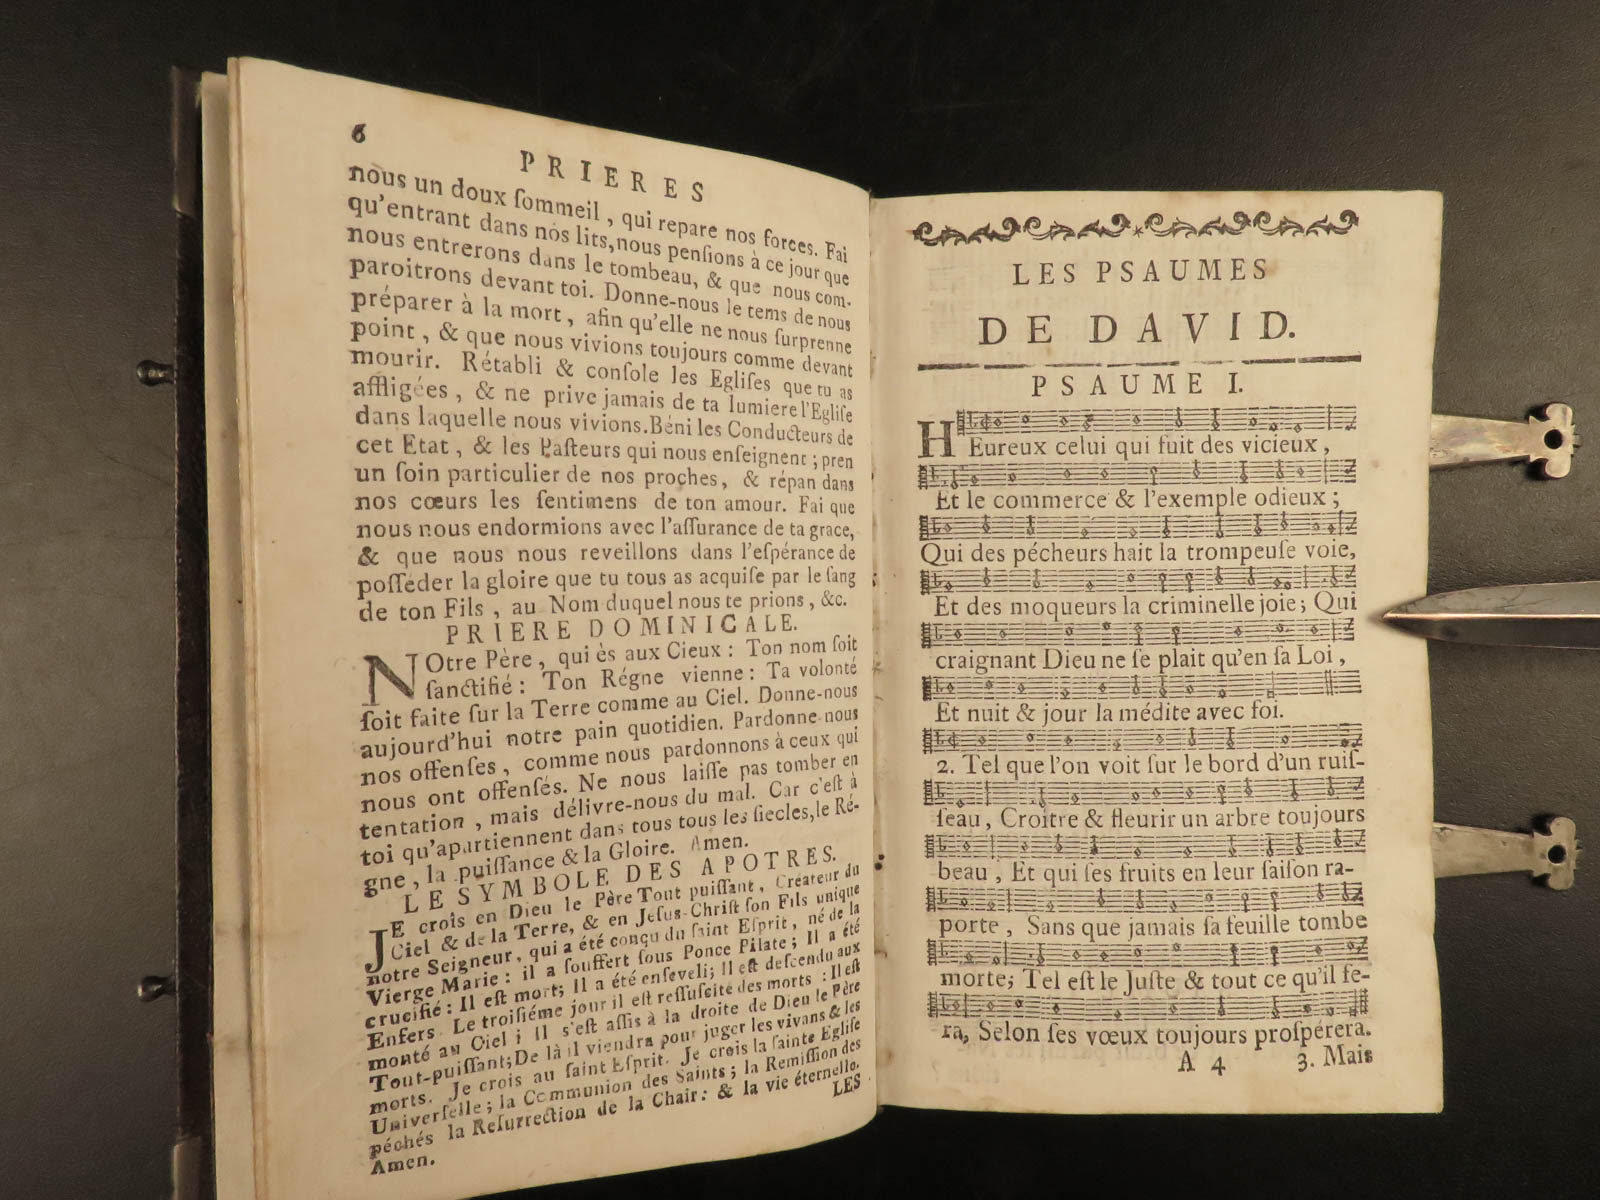 6
PRIERES
nous un doux ſommeil, qui repare nos forces. Fai
qu'entrant dans nos lits, nous penſions à ce jour que
nous entrerons dans le tombeau, & que nous com-
paroitrons devant toi. Donne-nous le tems de nous
préparer à la mort, afin qu'elle ne nous ſurprenne
point, & que nous vivions toujours comme devant
mourir. Rétabli & conſole les Egliſes que tu as
affligées, & ne prive jamais de ta lumiere l'Egliſe
dans laquelle nous vivions. Béni les Conducteurs de
cet Etat, & les Paſteurs qui nous enſeignent; pren
un ſoin particulier de nos proches, & répan dans
nos cœurs les ſentimens de ton amour. Fai que
nous nous endormions avec l'aſſurance de ta grace,
& que nous nous reveillons dans l'eſpérance de
poſſéder la gloire que tu tous as acquiſe par le ſang
de ton Fils, au Nom duquel nous te prions, &c.
PRIERE DOMINICALE.
NOtre Père, qui ès aux Cieux: Ton nom ſoit
ſanctifié: Ton Régne vienne: Ta volonté
ſoit faite ſur la Terre comme au Ciel. Donne-nous
aujourd'hui notre pain quotidien. Pardonne-nous
nos offenſes, comme nous pardonnons à ceux qui
nous ont offenſés. Ne nous laiſſe pas tomber en
tentation, mais délivre-nous du mal. Car c'eſt à
toi qu'apartiennent dans tous tous les ſiecles, le Ré-
gne, la puiſſance & la Gloire. Amen.
LE SYMBOLE DES APOTRES.
JE crois en Dieu le Père Tout puiſſant, Créateur du
Ciel & de la Terre, & en Jéſus-Chriſt ſon Fils unique
notre Seigneur, qui a été conçu du ſaint Eſprit, né de la
Vierge Marie: il a ſouffert ſous Ponce Pilate; Il a été
crucifié: Il eſt mort; Il a été enſeveli; Il eſt deſcendu aux
Enfers. Le troiſiéme jour il eſt reſſuſcité des morts: Il eſt
monté au Ciel; Il s'eſt aſſis à la droite de Dieu le Père
Tout-puiſſant; De là il viendra pour juger les vivans & les
morts. Je crois au ſaint Eſprit. Je crois la ſainte Egliſe
Univerſelle; la Communion des Saints; la Remiſſion des
péchés la Reſurrection de la Chair: & la vie éternelle.
Amen.
LES
LES PSAUMES
DE DAVID.
PSAUME I.
HEureux celui qui fuit des vicieux,
Et le commerce & l'exemple odieux;
Qui des pécheurs hait la trompeuſe voie,
Et des moqueurs la criminelle joie; Qui
craignant Dieu ne ſe plait qu'en ſa Loi,
Et nuit & jour la médite avec foi.
2. Tel que l'on voit ſur le bord d'un ruiſ-
ſeau, Croître & fleurir un arbre toujours
beau, Et qui ſes fruits en leur ſaiſon ra-
porte, Sans que jamais ſa feuille tombe
morte; Tel eſt le Juſte & tout ce qu'il fe-
ra, Selon ſes vœux toujours proſpérera.
A 4
3. Mais